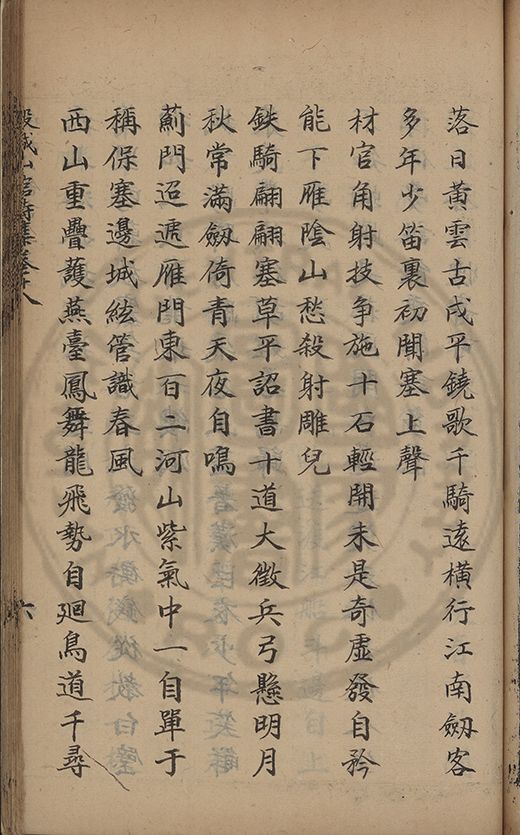 落日黃雲古戍平鐃歌千騎遠橫行江南劒客
多年少笛裏初聞塞上聲
材官角射技争施十石輕開未是奇虛發自矜
能下雁陰山愁殺射雕兒
鉄騎翩翩塞草平詔書十道大徵兵弓懸明月
秋常滿劒倚青天夜自鳴
薊門迢遞雁門東百二河山紫氣中一自單于
稱保塞邊城絃管識春風
西山重疊護燕臺鳳舞龍飛勢自廻鳥道千尋
穀城山館詩集卷十八
六